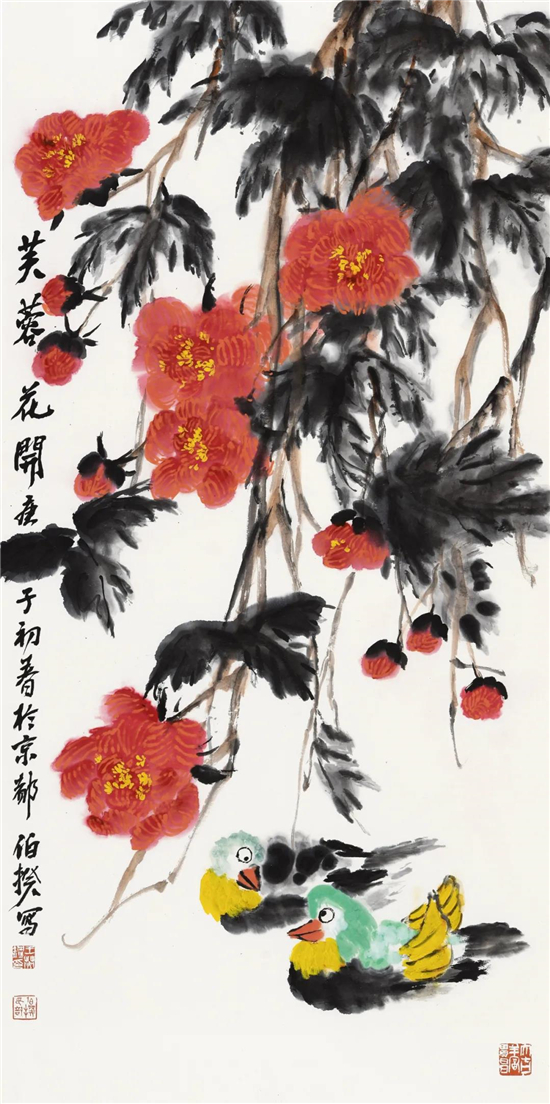 芙蓉花開庚子初春於京都伯揆寫